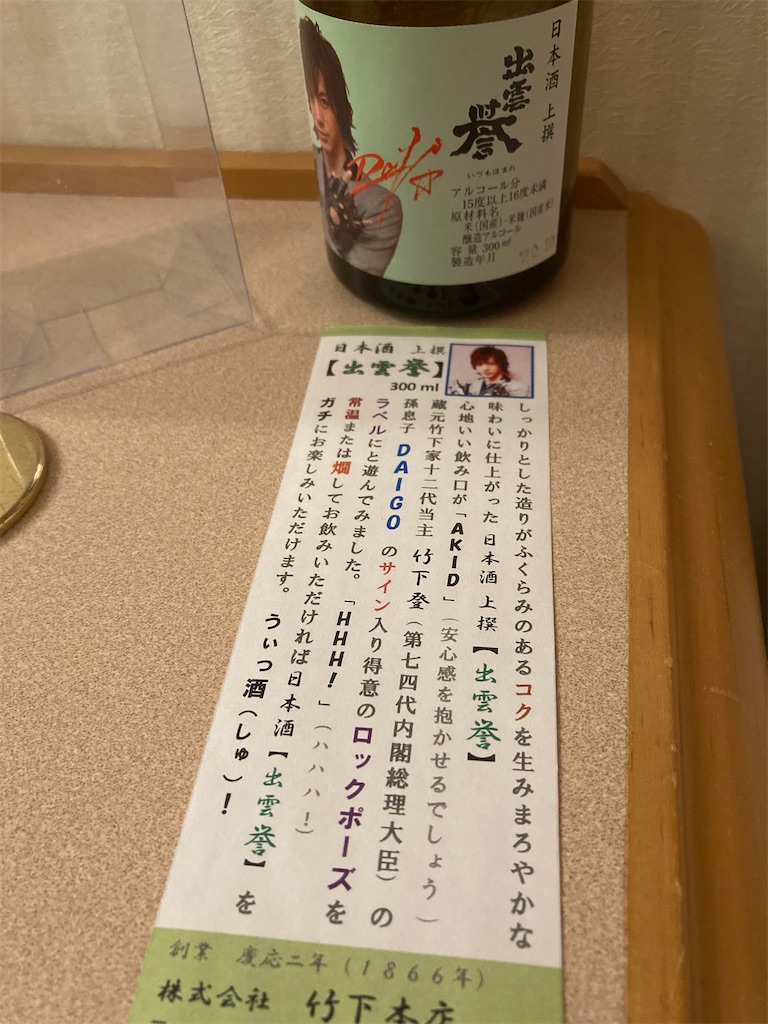 日本酒 上撰
出雲誉
いづもほまれ
アルコール分
15度以上16度未満
原材料名
米(国産)・米麹(国産米)
醸造アルコール
容量 300ml
製造年月
日本酒 上撰
【出雲誉】
300 ml
しっかりとした造りがふくらみのあるコクを生みまろやかな
味わいに仕上がった 日本酒 上撰【出雲誉】
心地いい飲み口が「AKID」(安心感を抱かせるでしょう)
蔵元竹下家十二代当主 竹下登(第七四代内閣総理大臣)の
孫息子 DAIGO のサイン入り得意のロックポーズを
ラベルにと遊んでみました。「HHH!」(ハハハ!)
常温または燗してお飲みいただければ日本酒【出雲誉】を
ガチにお楽しみいただけます。 うぃっ酒(しゅ)!
創業 慶応二年(1866年)
株式会社 竹下本店